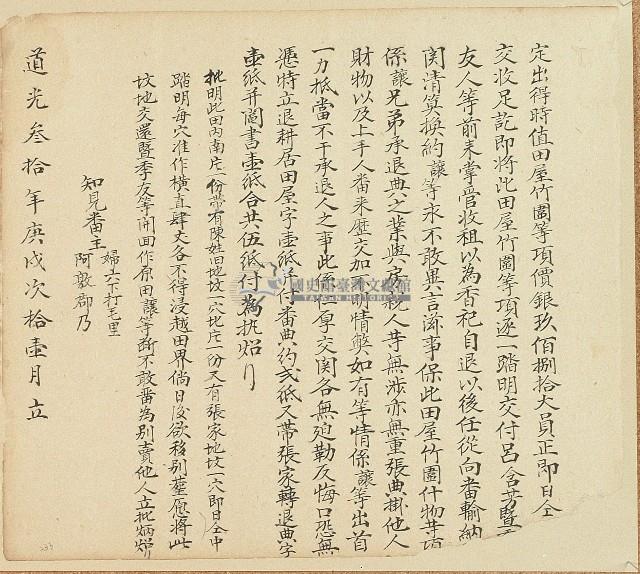 定出得時值田屋竹圍等項價銀玖佰捌拾大員正即日仝
交收足訖即將此田屋竹圍等項逐一踏明交付呂含芳暨
友人等前來掌管收租以為香祀自退以後任從向番輸納
閱清算換約讓等永不敢異言滋事保此田屋竹圍什物等項
係讓兄弟承退典之業與房親人等無涉亦無重張典掛他人
財物以及上手人番來歷交加不明情弊如有等情係讓等出首
一力抵當不干承退人之事此係仁厚交関各無迫勒反悔口恐無
憑特立退耕居田屋字壹紙付番典約弍紙又帶張家轉退典字
壹紙并鬮書壹紙合共伍紙付為執炤行
批明此田內南片一份帶有陳姓旧地坟一穴北片一份又有張家地坟一穴即日仝中
踏明每穴准作橫直肆丈各不得浸越田界倘日後欲移別塟愿將此
坟地交還暨季友等開面作原田讓等断不敢番為別賣他人立批炳炤行
知見番主
婦六下打毛里
阿敦郡乃
道光叄拾年庚戌次拾壹月 立
國史館臺灣文獻館
TAIWAN HISTORICA